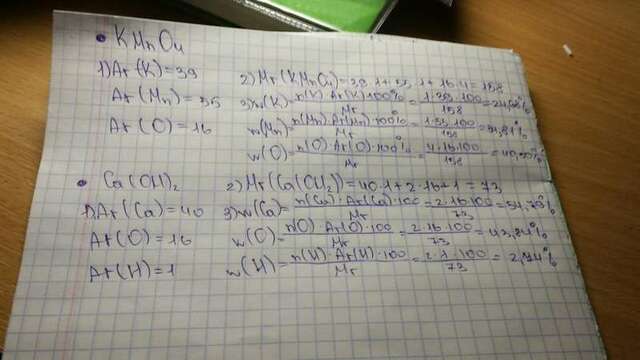 • KMnO4
1) Ar(K)=39
Ar(Mn)=55
Ar(O)=16
2) Mr(KMnO4)=39·1+55·1+16·4=158
3) w(K)=n(K)·Ar(K)·100%/Mr=1·39·100/158=24,68%
w(Mn)=n(Mn)·Ar(Mn)·100%/Mr=1·55·100/158=34,81%
w(O)=n(O)·Ar(O)·100%/Mr=4·16·100/158=40,50%
• Ca(OH)2
1) Ar(Ca)=40
Ar(O)=16
Ar(H)=1
2) Mr(Ca(OH2))=40·1+2·16+1=73
3) w(Ca)=n(Ca)·Ar(Ca)·100/Mr=2·16·100/73=54,79%
w(O)=n(O)·Ar(O)·100/Mr=2·16·100/73=43,84%
w(H)=n(H)·Ar(H)·100/Mr=2·1·100/73=2,74%